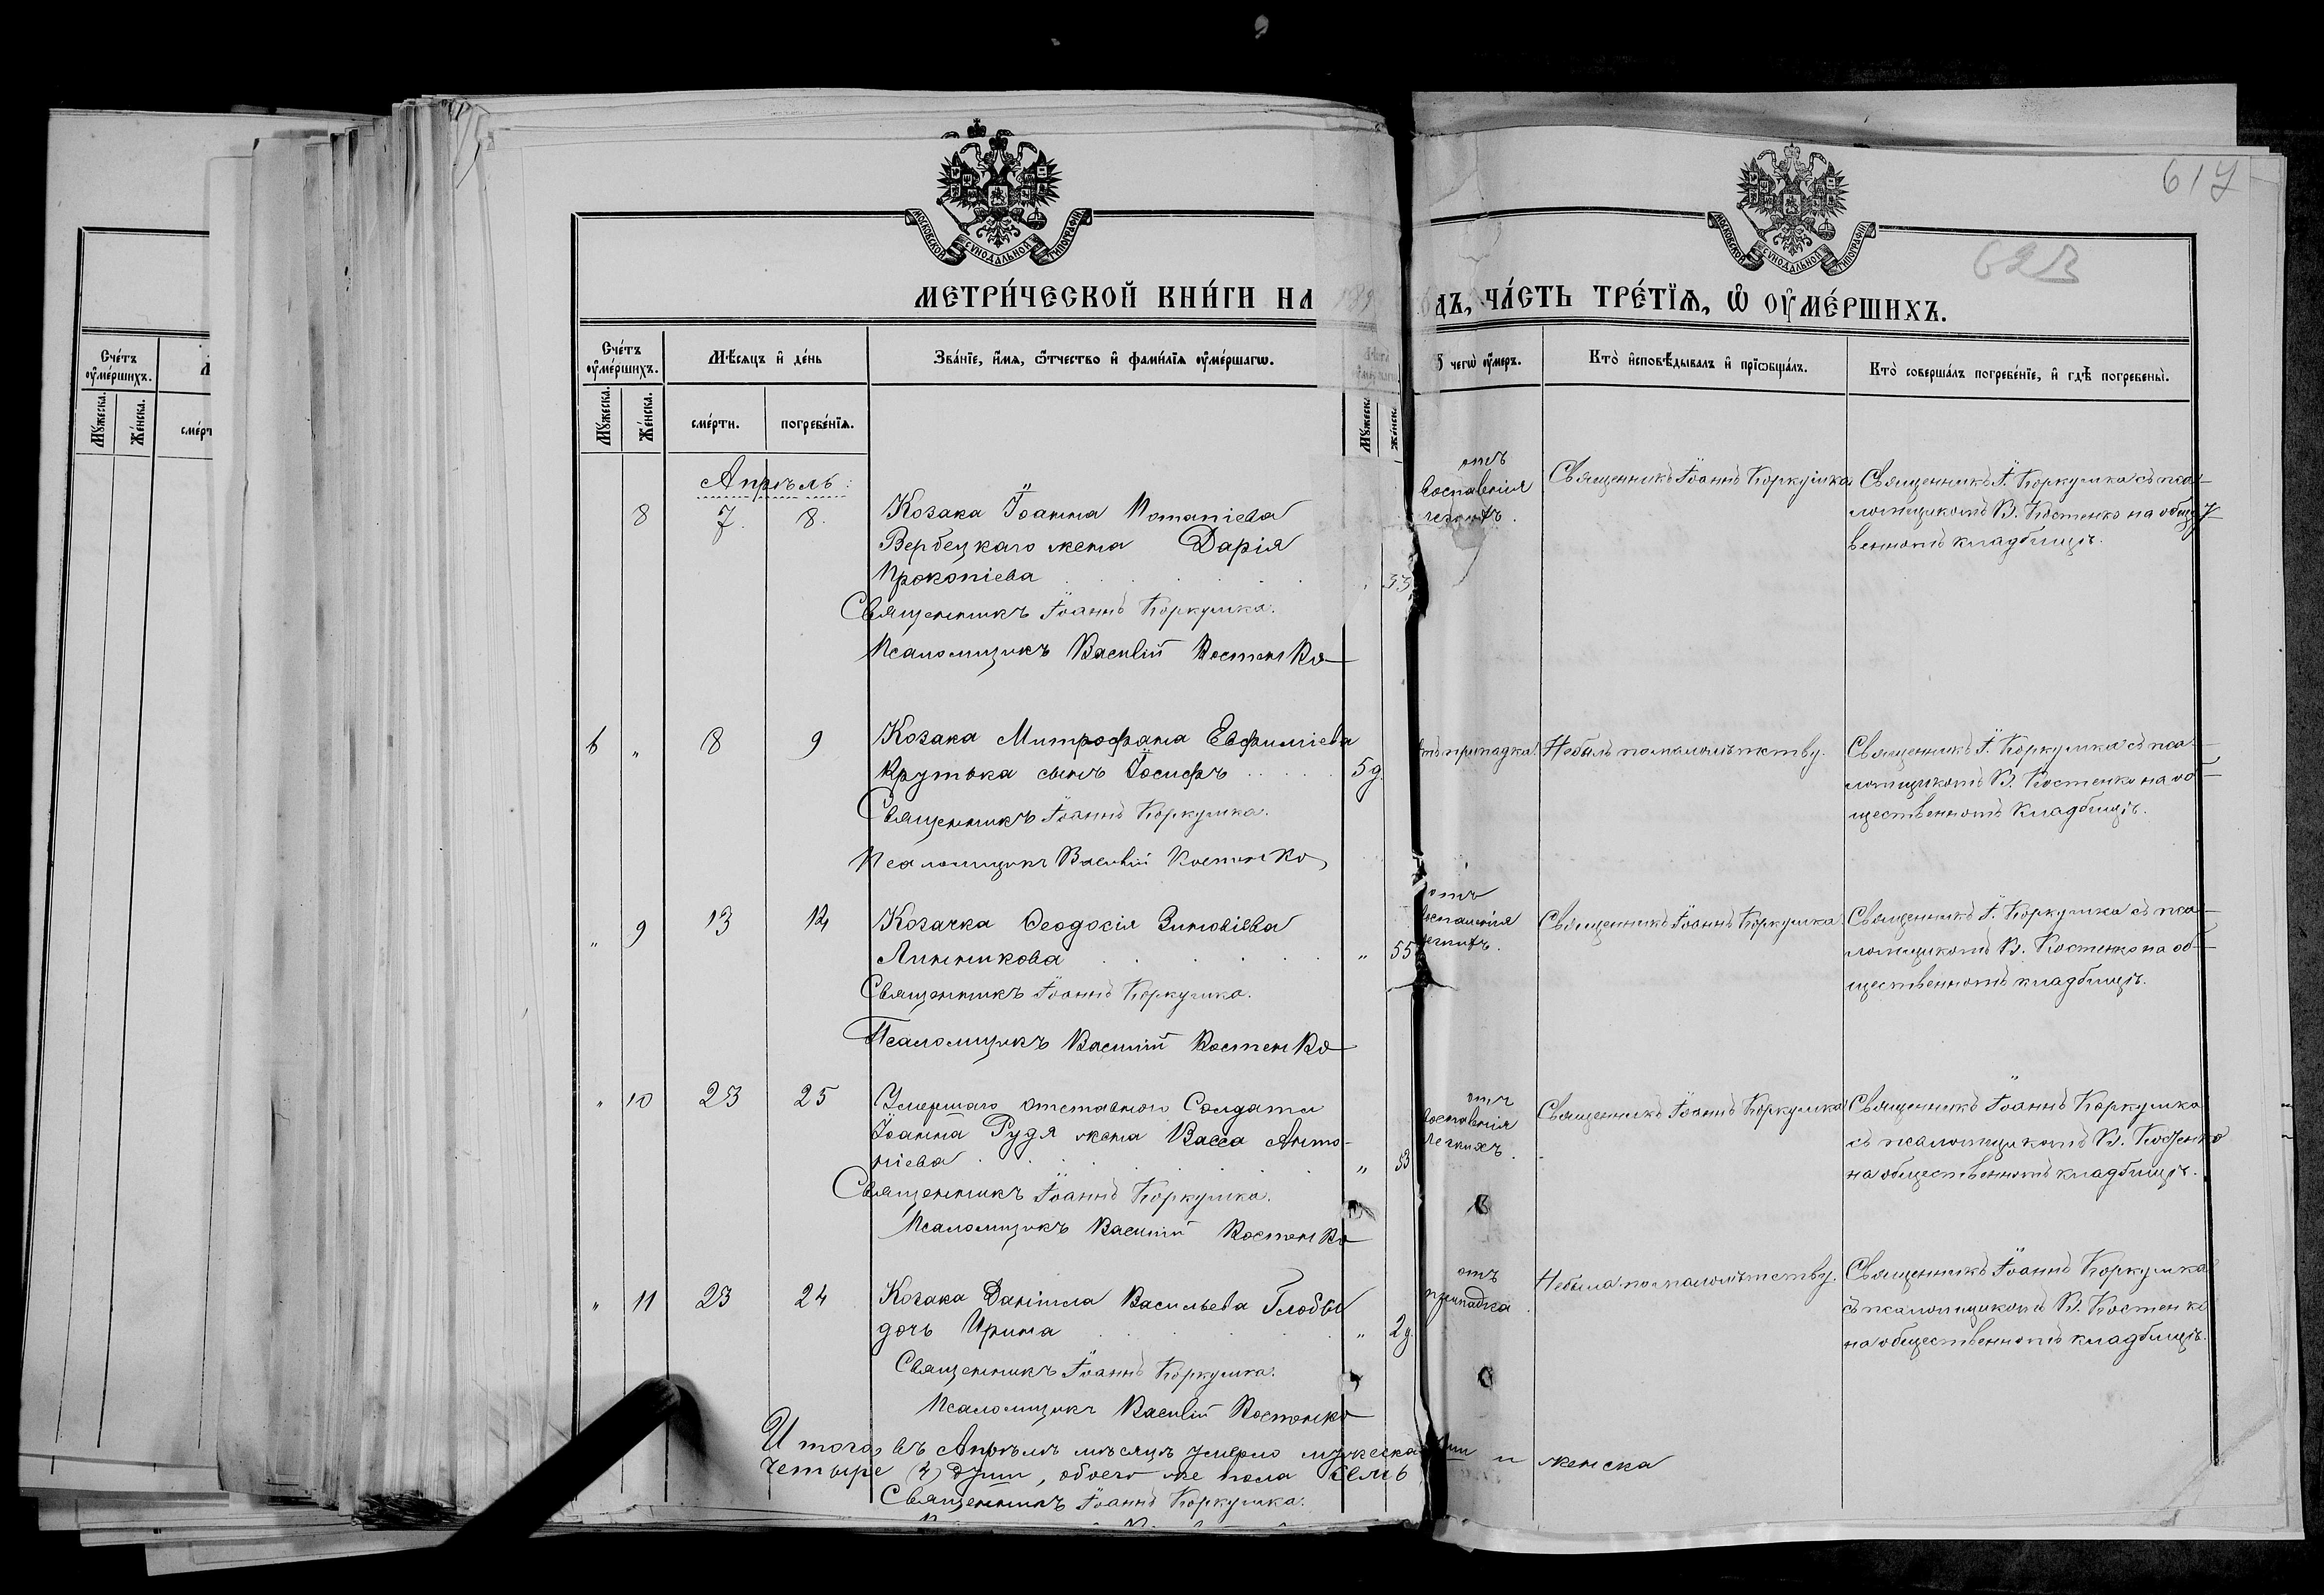 617
623
МОСКОВСКОЙ СѴНОДАЛЬНОЙ ТИПОГРАФІИ
МОСКОВСКОЙ СѴНОДАЛЬНОЙ ТИПОГРАФІИ
МЕТРИ́ЧЕСКОЙ КНИ́ГИ НА 189
ДЪ, ЧА́СТЬ ТРЕ́ТІѦ, Ѡ҆ ОУ҆МЕ́РШИХЪ.
Сче́тъ оу҆ме́ршихъ.
Мѣсяцъ и҆ де́нь
Зва́нїе, и҆́мя, ѻ҆́тчество и҆ фами́лїя оу҆ме́ршагѡ.
чегѡ̀ оу҆́меръ.
Кто̀ и҆сповѣ́дывалъ и҆ прїѡбща́лъ.
Кто̀ соверша́лъ погребе́нїе, и҆ гдѣ̀ погребены̀.
Мꙋ́жеска.
Же́нска.
сме́рти.
погребе́нїя.
Мꙋ́жеска
Же́нска
Сче́тъ оу҆ме́ршихъ.
Мꙋ́жеска.
Же́нска.
сме́рт
Апрѣль
8 7. 8. Козака Іоанна Потапіева
Вербецкаго жена Дарія
Прокопіева 33
Священникъ Іоаннъ Коркушка.
Псаломщикъ Василій Костенко
отъ
воспаленія
легкихъ.
Священникъ Іоаннъ Коркушка
Священникъ І. Коркушка съ пса-
ломщикомъ В. Костенко на общес-
венномъ кладбищѣ.
6 " 8 9 Козака Митрофана Евфиміева
Крутька сынъ Іосифъ 5 д.
Священникъ Іоаннъ Коркушка.
Псаломщикъ Василій Костенко
отъ припадка.
Небылъ по малолѣтству.
Священникъ І. Коркушка съ пса-
ломщикомъ В. Костенко на об-
щественномъ кладбищѣ.
" 9 13 14 Козачка Ѳеодосія Зиновіева
Линникова " 55
Священникъ Іоаннъ Коркушка.
Псаломщикъ Василій Костенко
отъ
воспаленія
легкихъ.
Священникъ Іоаннъ Коркушка
Священникъ І. Коркушка съ пса-
ломщикомъ В. Костенко на об-
щественномъ кладбищѣ.
" 10 23 25 Умершаго отставного Солдата
Іоанна Рудя жена Васса Анто-
ніева " 53
Священникъ Іоаннъ Коркушка.
Псаломщикъ Василій Костенко
отъ
воспаленія
легкихъ.
Священникъ Іоаннъ Коркушка
Священникъ Іоаннъ Коркушка
съ псаломщикомъ В. Костенко
на общественномъ кладбищѣ.
" 11 23 24 Козака Даніила Васильева Глобы
дочь Ирина " 2 д.
Священникъ Іоаннъ Коркушка.
Псаломщикъ Василій Костенко
отъ
припадка.
Небыла по малолѣтству.
Священникъ Іоаннъ Коркушка
съ псаломщикомъ В. Костенко
на общественномъ кладбищѣ.
Итого въ Апрѣлѣ мѣсяцѣ умерло мужеска и женска
четыре (4) души, обоего же пола семь
Священникъ Іоаннъ Коркушка.